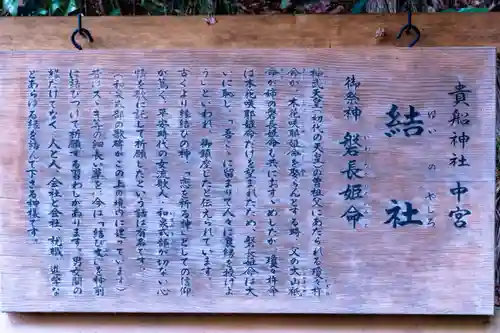 貴船神社 中宮
結社
ゆいのやしろ
御祭神 磐長姫命
いわながひめのみこと
神武天皇（初代の天皇）の曽祖父にあたられる瓊々杵
命が、木花咲耶姫命を娶ろうとする時、父の大山祇
命が姉の磐長姫命も共におすゝめしたが、瓊々杵命
は木花咲耶姫命だけを望まれたため、磐長姫命は大
いに恥じ、「吾こゝに留まりて人々に良縁を授けよ
う」といわれ、御鎮座したと伝えられています。
古くより縁結びの神、「恋を祈る神」としての信仰
が篤く、平安時代の女流歌人・和泉式部が切ない心
情を歌に託して祈願したという話は有名です。
（和泉式部の歌碑がこの上の境内に建っています）
昔はすゝき等の細長い草を、今は「結び文」を特別
に結びつけて祈願する習わしがあります。男女間の
縁だけでなく、人と人、会社と会社、就職、進学な
どあらゆる縁を結んで下さる神様です。